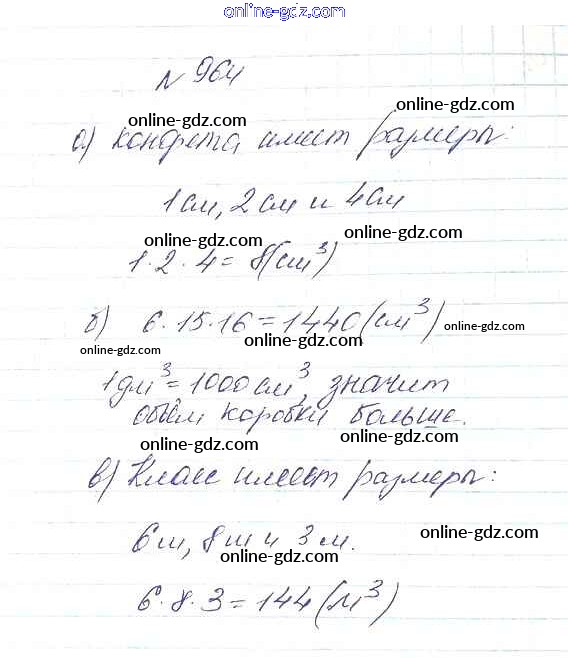 online-gdz.com
N 964
online-gdz.com online-gdz.com
а) конфета имеет размеры:
1 см, 2 см и 4 см
online-gdz.com online-gdz.com
1·2·4 = 8(см³)
online-gdz.com
б) 6·15·16 = 1440 (см³) online-gdz.com
online-gdz.com online-gdz.com
1 дм³ = 1000 см³, значит
объём коробки больше.
online-gdz.com online-gdz.com
в) Класс имеет размеры:
online-gdz.com
6 м, 8 м и 3 м.
online-gdz.com online-gdz.com
6·8·3 = 144 (м³)
online-gdz.com
online-gdz.com